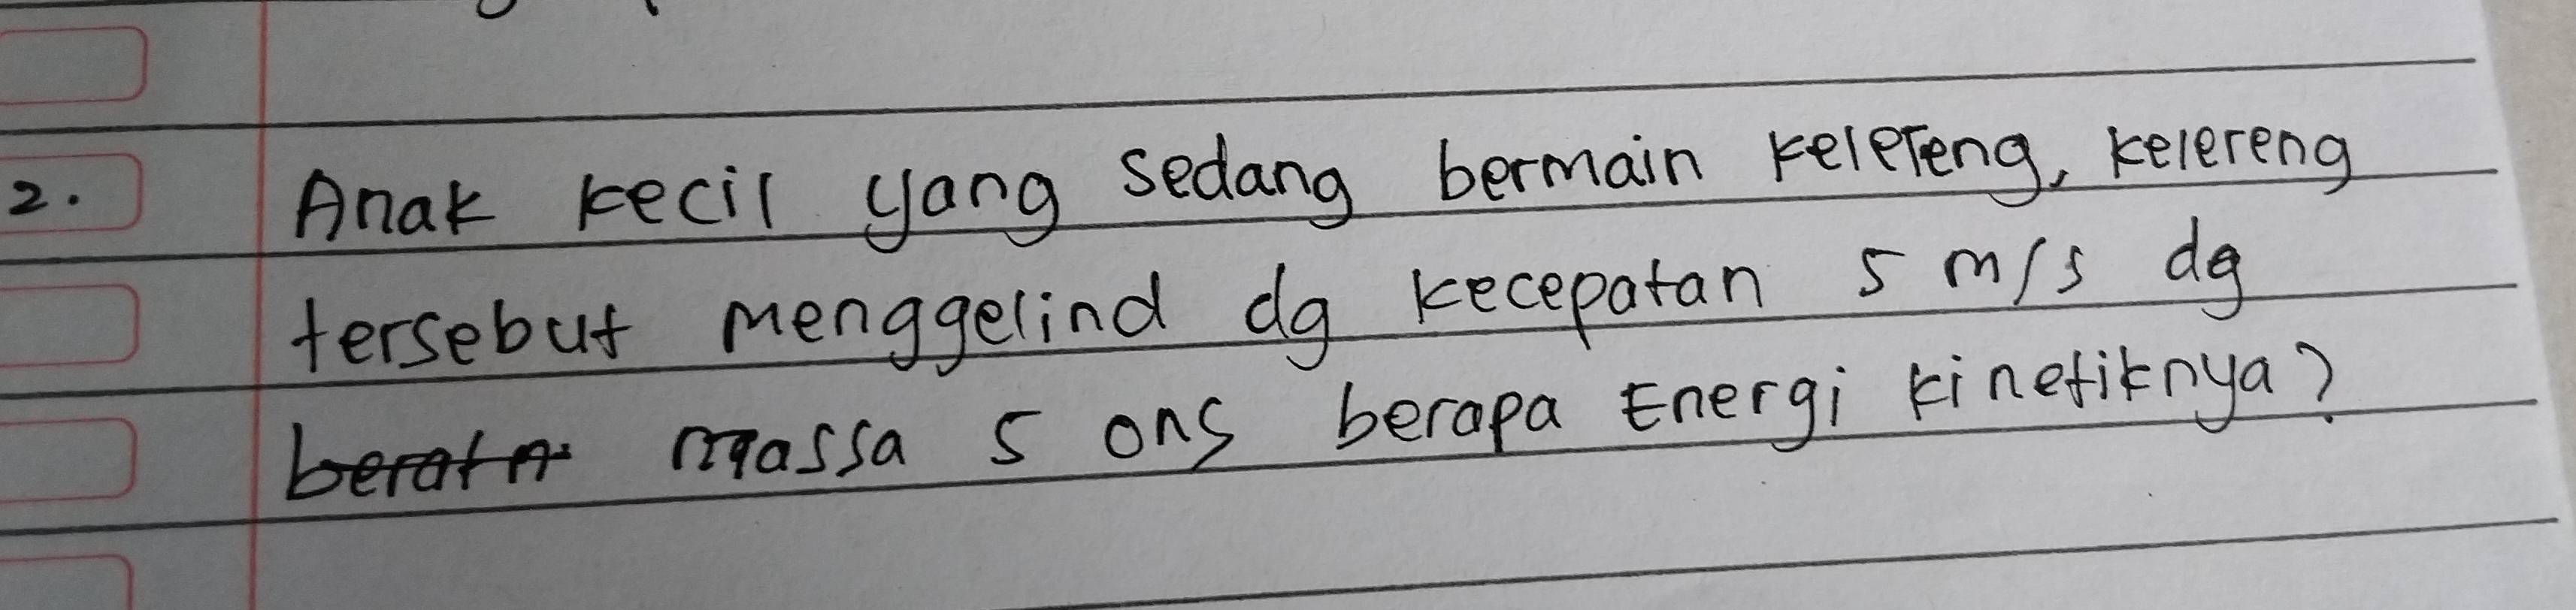 2. Anak kecil yang sedang bermain kelereng, kelereng
tersebut menggelind dg kecepatan 5 m/s dg
massa 5 ons berapa Energi kinetiknya?